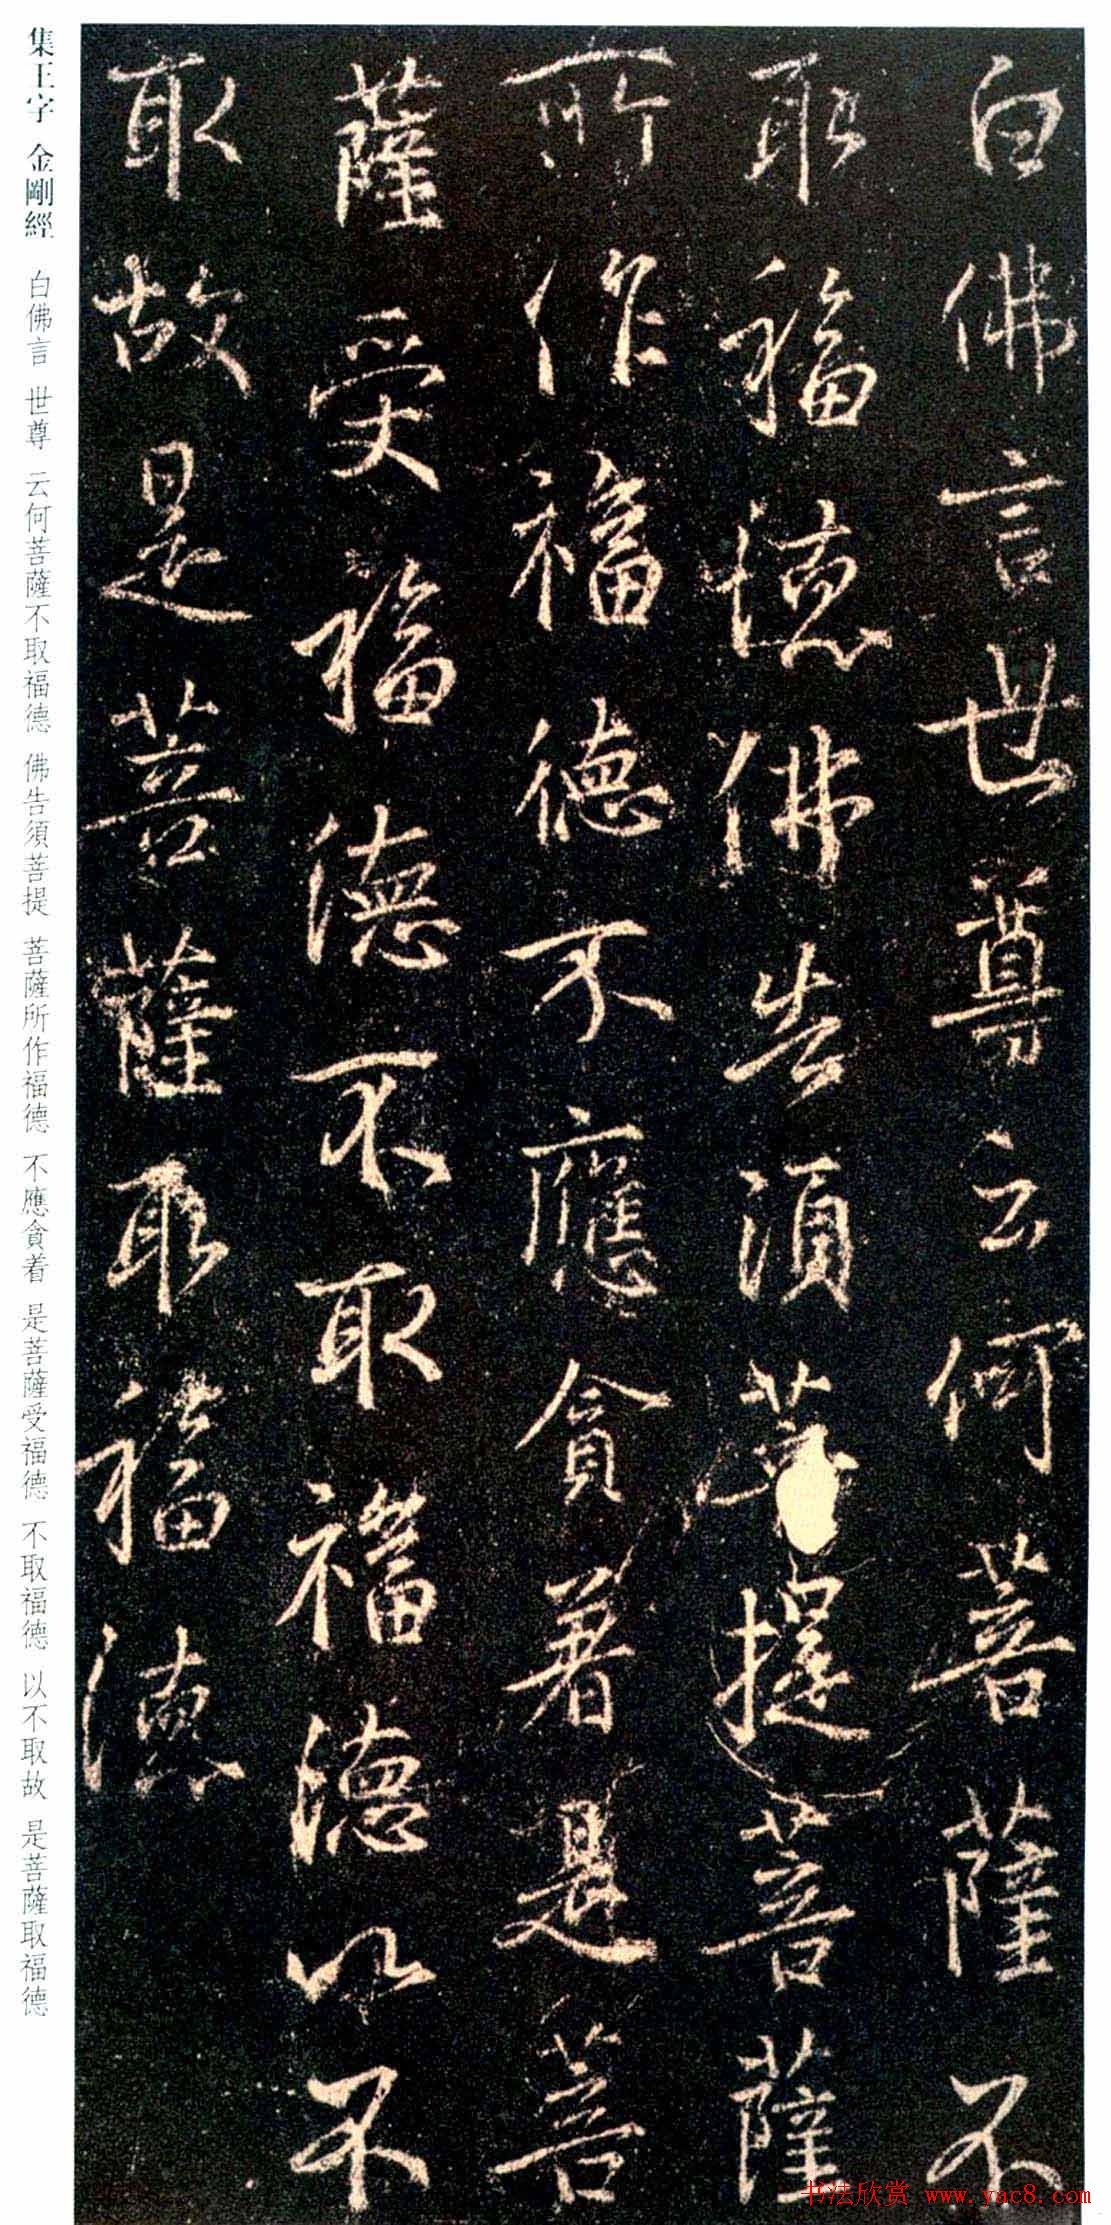 白佛言世尊云何菩薩不
取福德佛告須菩提菩薩
所作福德不應貪著是菩
薩受福德不取福德以不
取故是菩薩取福德
集王字 金剛經 白佛言 世尊 云何菩薩不取福德 佛告須菩提 菩薩所作福德 不應貪着 是菩薩受福德 不取福德 以不取故 是菩薩取福德
书法欣赏 www.yac8.com